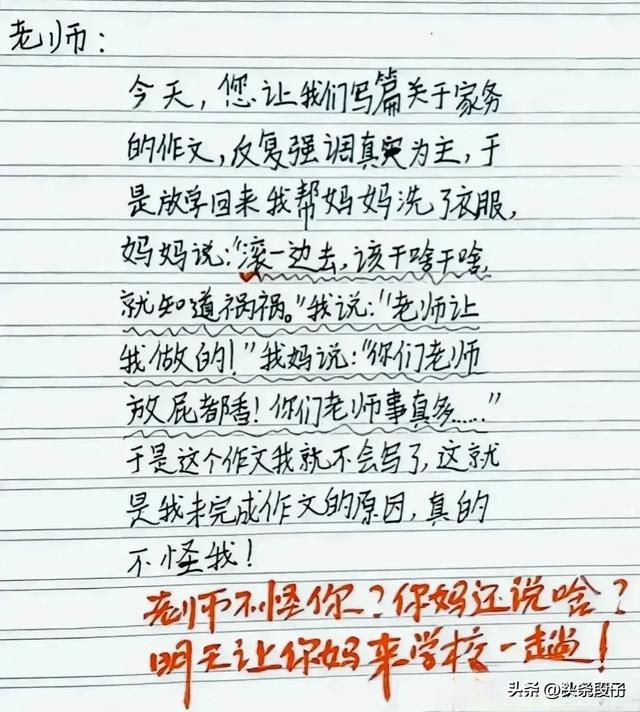 老师：
今天，您让我们写篇关于家务
的作文，反复强调真实为主，于
是放学回来我帮妈妈洗了衣服，
妈妈说："滚一边去，该干啥干啥，
就知道祸祸。"我说："老师让
我做的！"我妈说："你们老师
放屁都香！你们老师事真多……"
于是这个作文我就不会写了，这就
是我未完成作文的原因，真的
不怪我！
老师不怪你？你妈还说啥？
明天让你妈来学校一趟！
头条 @头条段子